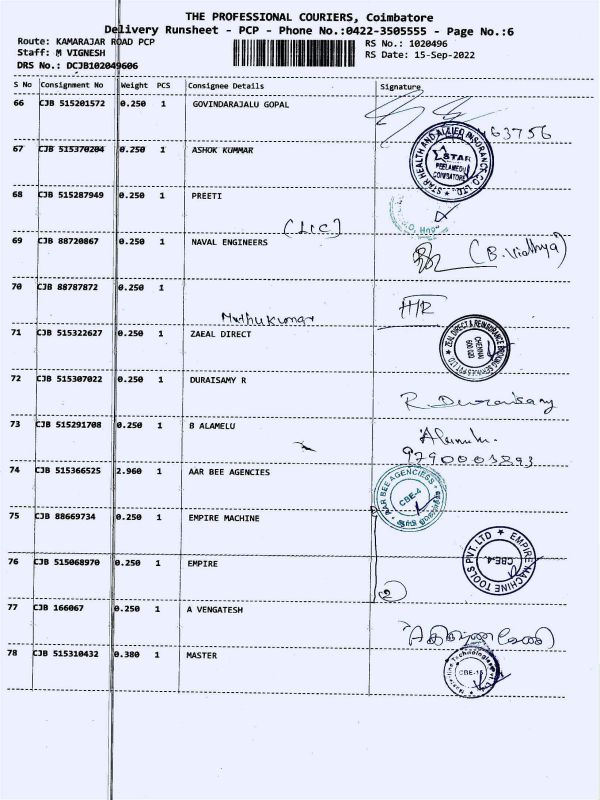 THE PROFESSIONAL COURIERS, Coimbatore
Delivery Runsheet - PCP - Phone No.:0422-3505555 - Page No.:6
Route: KAMARAJAR ROAD PCP RS No.: 1020496
Staff: M VIGNESH RS Date: 15-Sep-2022
DRS No.: DCJB102049606
S No Consignment No Weight PCS Consignee Details Signature
66 CJB 515201572 0.250 1 GOVINDARAJALU GOPAL
63756
67 CJB 515370204 0.250 1 ASHOK KUMMAR
STAR HEALTH AND ALLIED INSURANCE CO. LTD.
STAR
PEELAMEDU
COIMBATORE
68 CJB 515287949 0.250 1 PREETI
(LIC)
69 CJB 88720867 0.250 1 NAVAL ENGINEERS (B. Vidhya)
70 CJB 88787872 0.250 1 H/R
Muthukumar
71 CJB 515322627 0.250 1 ZAEAL DIRECT
ZEAL DIRECT & REINSURANCE BROKING SERVICES PVT. LTD
CHENNAI
600 020
72 CJB 515307022 0.250 1 DURAISAMY R
R. Duraisamy
73 CJB 515291708 0.250 1 B ALAMELU
Alamelu.
9790003293
74 CJB 515366525 2.960 1 AAR BEE AGENCIES
AAR BEE AGENCIESS
CBE-4
75 CJB 88669734 0.250 1 EMPIRE MACHINE
EMPIRE MACHINE TOOLS PVT. LTD
CBE-4.
76 CJB 515068970 0.250 1 EMPIRE
77 CJB 166067 0.250 1 A VENGATESH
78 CJB 515310432 0.380 1 MASTER
CBE-15